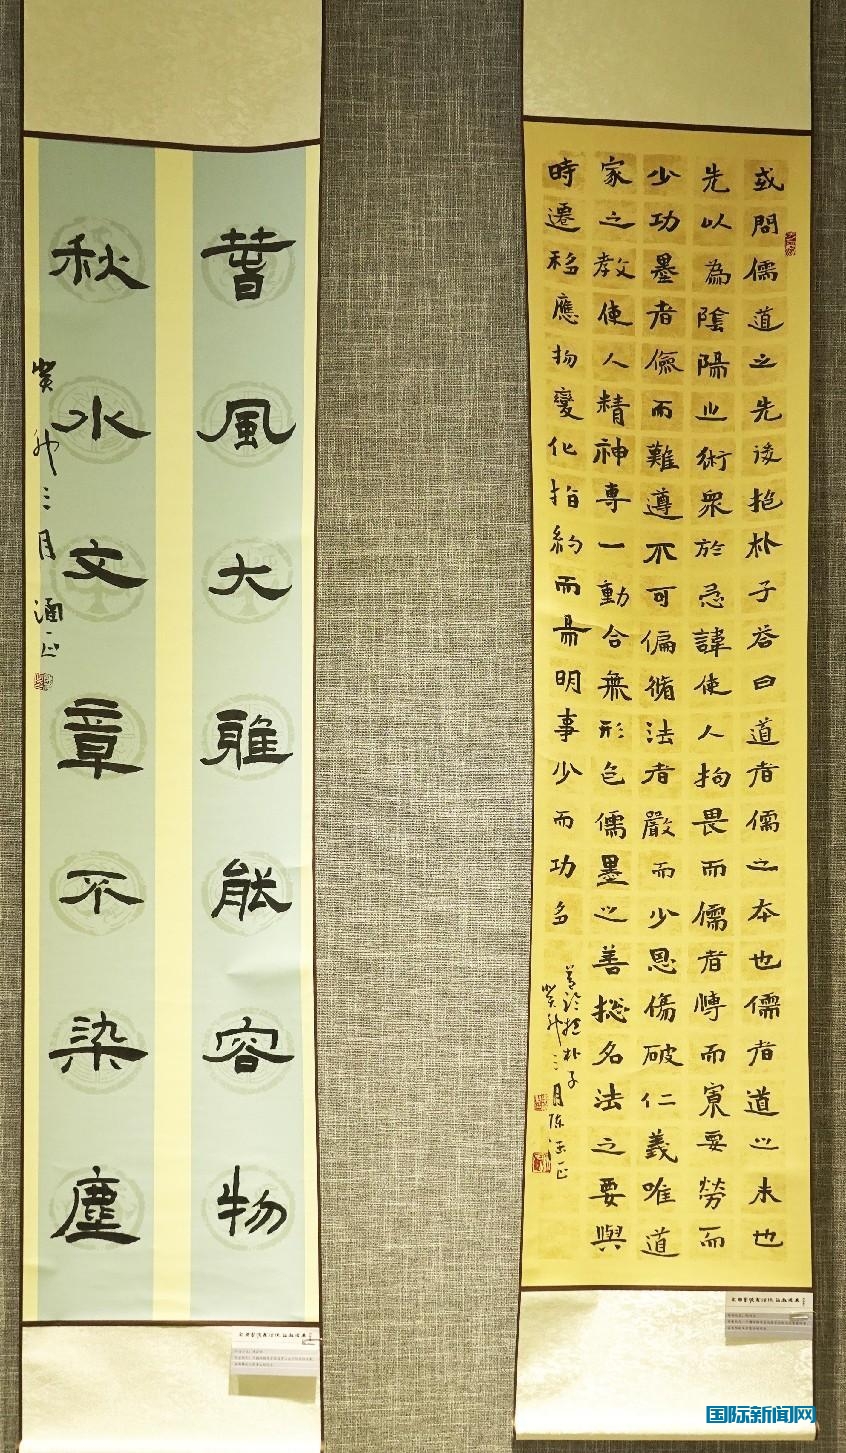 或問儒道之先後抱朴子答曰道者儒之本也儒者道之末也
先以為陰陽之術眾於忌諱使人拘畏而儒者博而寡要勞而
少功墨者儉而難遵不可偏循法者嚴而少恩傷破仁義唯道
家之教使人精神專一動合無形包儒墨之善總名法之要與
時遷移應物變化指約而易明事少而功多
葛洪抱朴子
癸卯三月陈
春風大雅能容物
秋水文章不染塵
癸卯三月涵正
国际新闻网